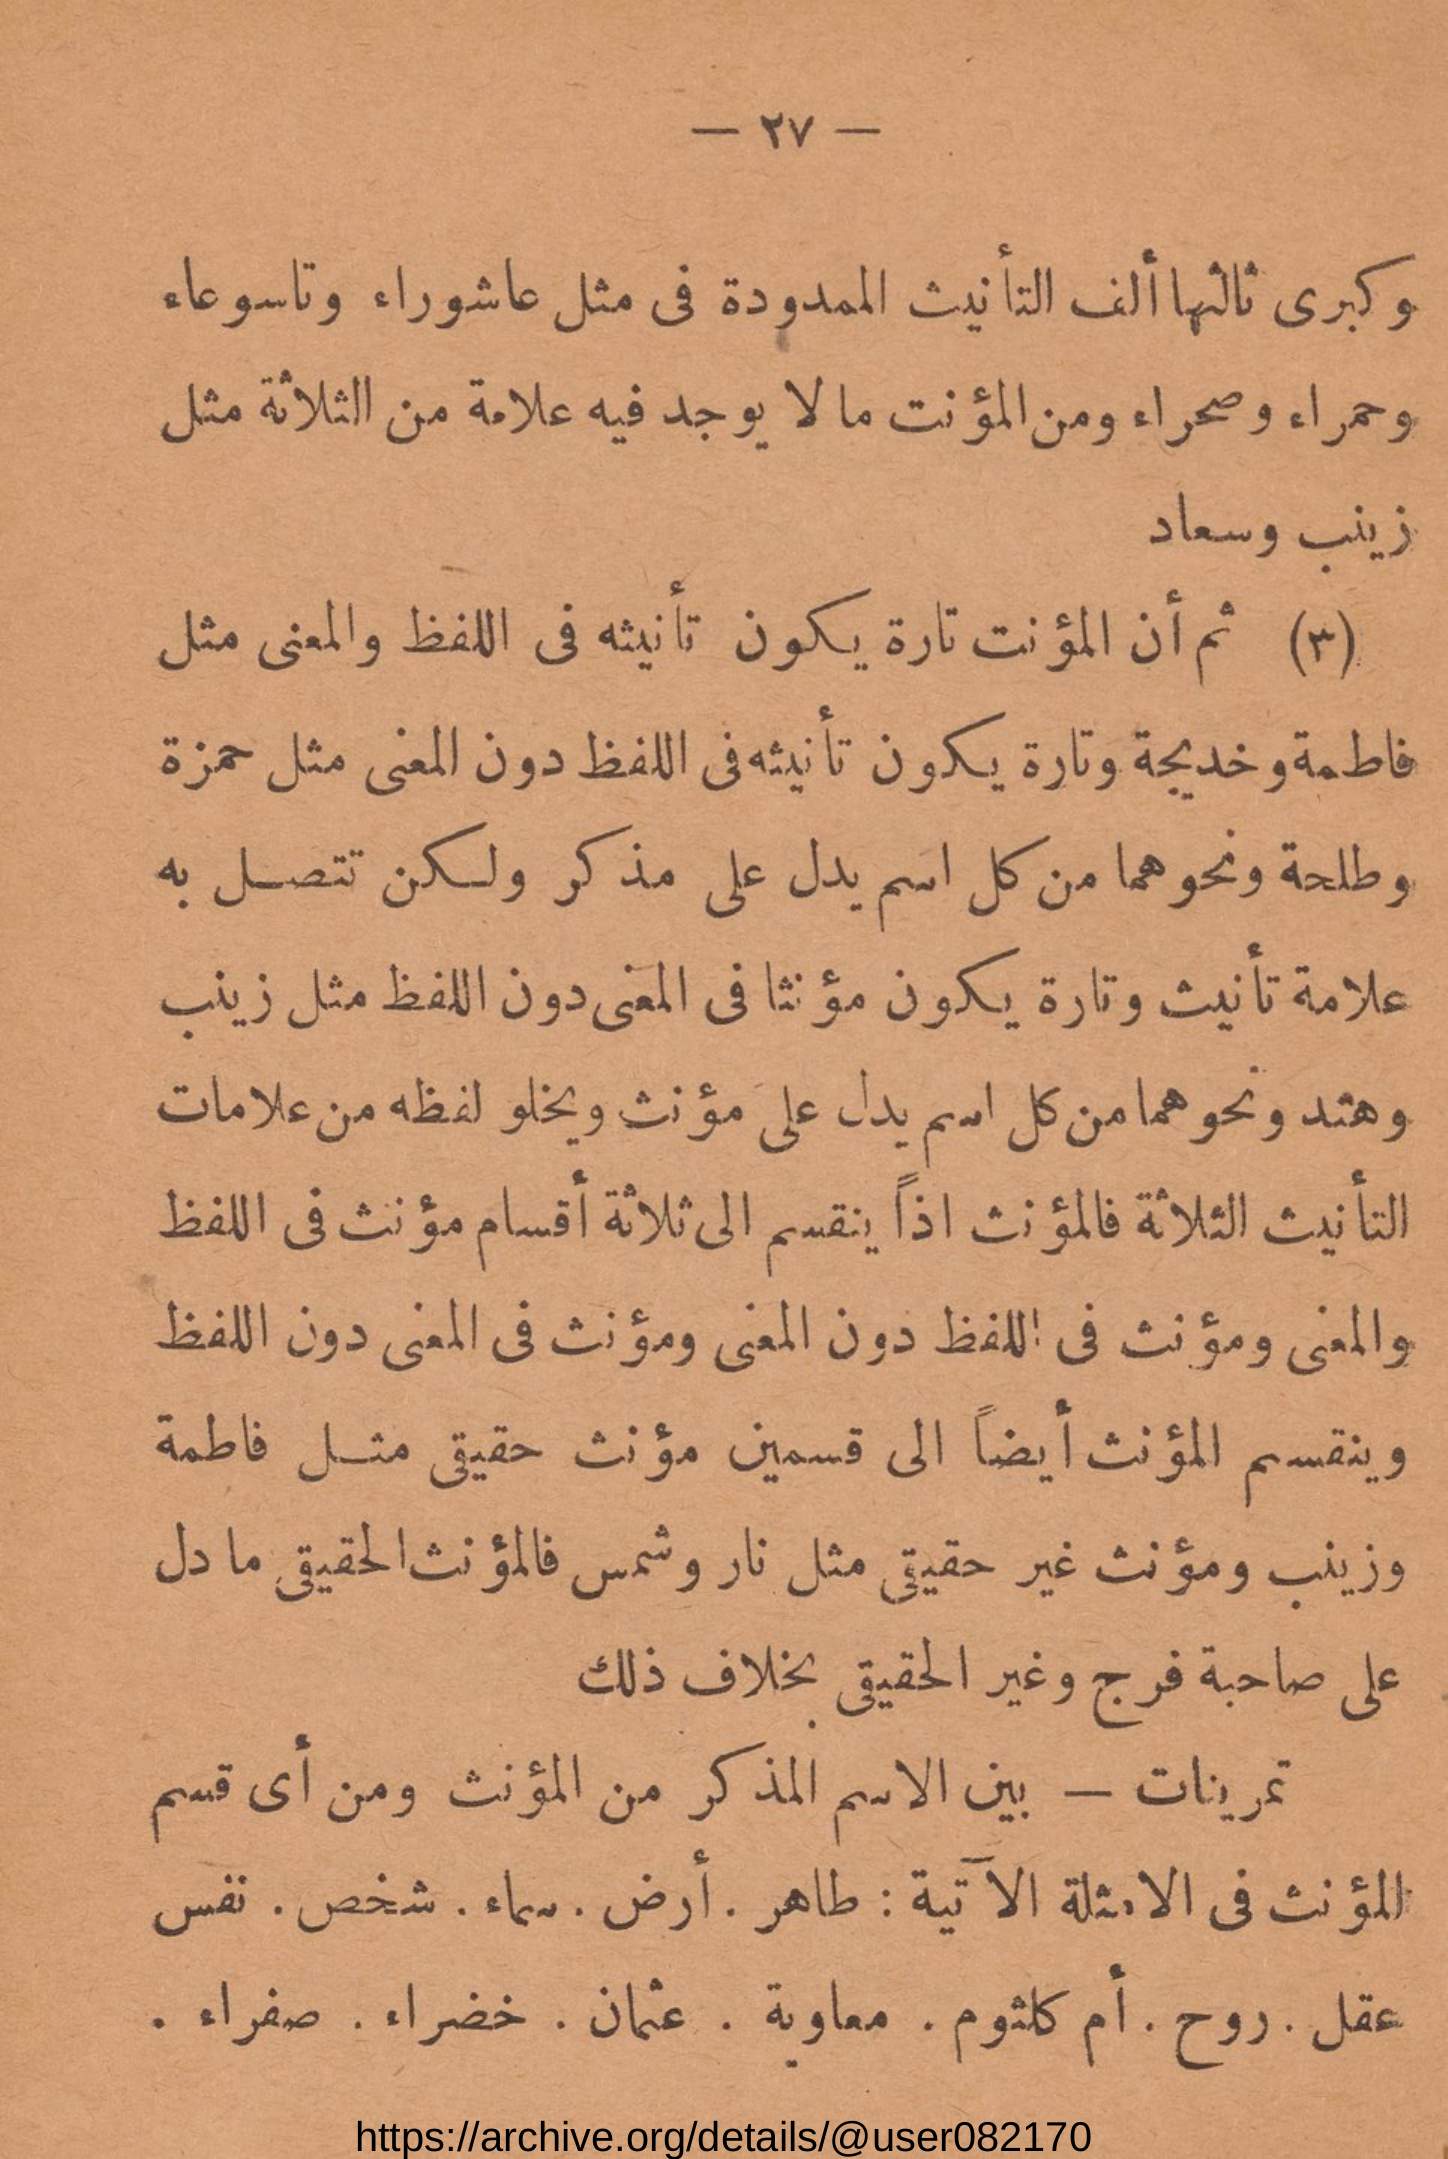 — ٢٧ —
وكبرى ثالثها ألف التأنيث الممدودة فى مثل عاشوراء وتاسوعاء
وحمراء وصحراء ومن المؤنت ما لا يوجد فيه علامة من الثلاثة مثل
زينب وسعاد
(٣) ثم أن المؤنت تارة يكون تأنيثه فى اللفظ والمعنى مثل
فاطمة وخديجة وتارة يكون تأنيثه فى اللفظ دون المعنى مثل حمزة
وطلحة ونحوهما من كل اسم يدل على مذكر ولكن تتصل به
علامة تأنيث وتارة يكون مؤنثا فى المعنى دون اللفظ مثل زينب
وهند ونحوهما من كل اسم يدل على مؤنث ويخلو لفظه من علامات
التأنيث الثلاثة فالمؤنث اذاً ينقسم الى ثلاثة أقسام مؤنث فى اللفظ
والمعنى ومؤنث فى اللفظ دون المعنى ومؤنث فى المعنى دون اللفظ
وينقسم المؤنث أيضاً الى قسمين مؤنث حقيقى مثل فاطمة
وزينب ومؤنث غير حقيقى مثل نار وشمس فالمؤنث الحقيقى ما دل
على صاحبة فرج وغير الحقيقى بخلاف ذلك
تمرينات — بين الاسم المذكر من المؤنث ومن أى قسم
المؤنث فى الامثلة الآتية : طاهر . أرض . سماء . شخص . نفس
عقل . روح . أم كلثوم . معاوية . عثمان . خضراء . صفراء .
https://archive.org/details/@user082170